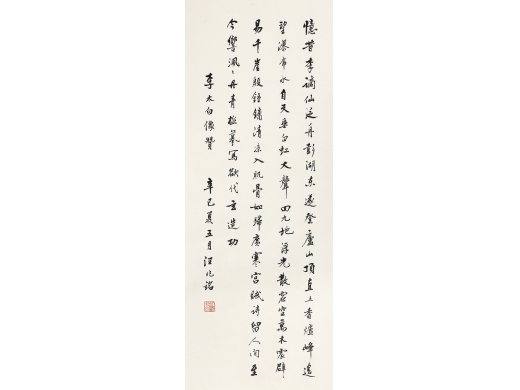 憶昔李謫仙泛舟彭湖東遂登廬山頂直上香爐峰遙
望瀑布水自天垂白虹大聲回九地浮光散虛空萬木震辟
易千崖殷鏗鏞清涼入肌骨如歸廣寒宮賦詩留人間至
今響渢渢丹青極摹寫欲代玄造功
李太白像贊 辛巳夏五月汪兆銘